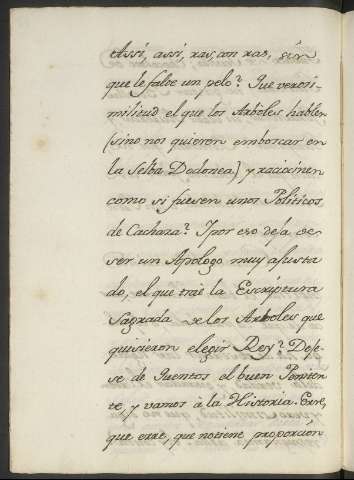 Assi, assi, ras, con ras, sin
que le falte un pelo? Que verosi-
militud el que los Arboles hablen
(sino nos quieren emboscar en
la Selva Dodonea) y raciocinen
como si fuesen unos Politicos
de Cachaza? Ipor eso deja de
ser un Apologo muy ajusta
do, el que traè la Escriptura
Sagrada de los Arboles que
quisieron elegir Rey? Deje-
se de Quentos el buen Peniten
te, y vamos à la Historia. Erre,
que erre, que no tiene proporcion